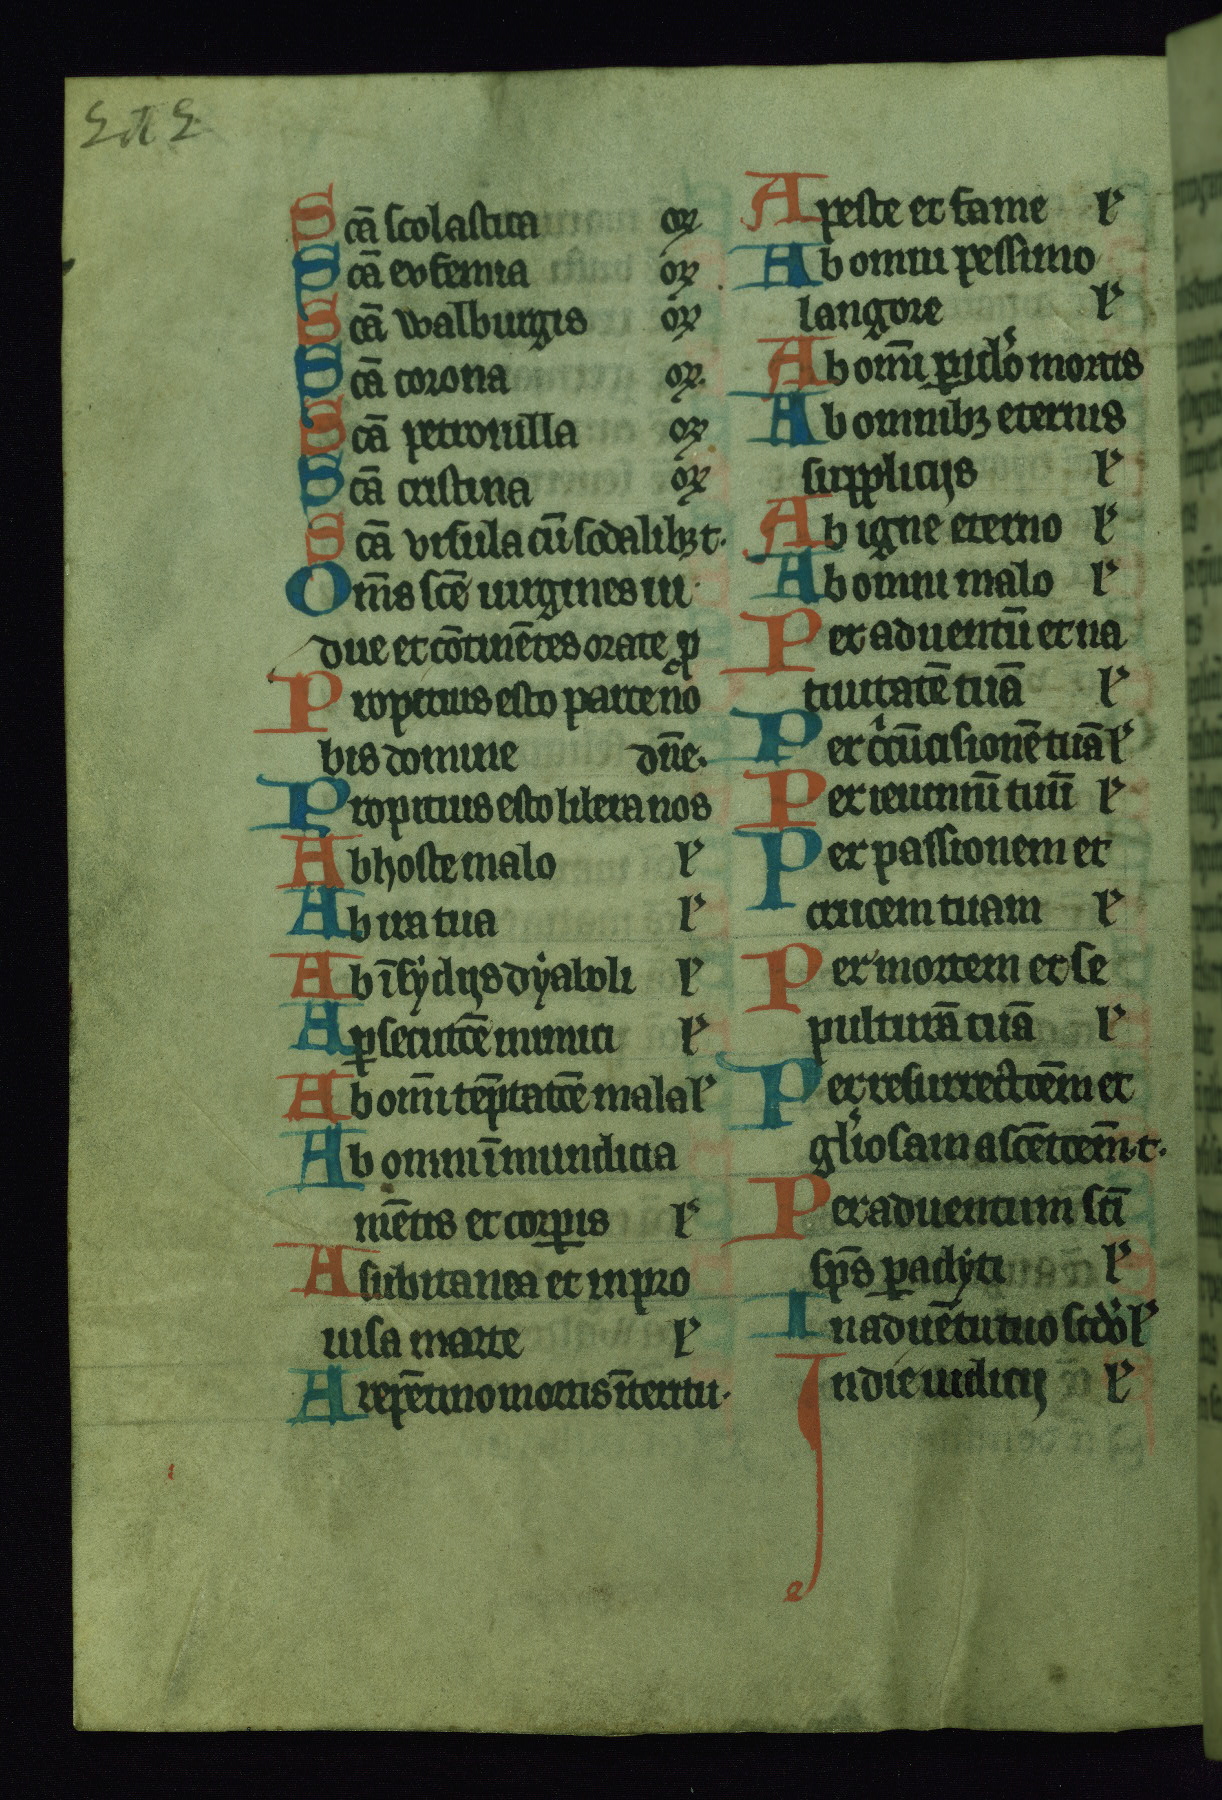 Scā scolastica or
Scā eufemia or
Scā walburgis or
Scā corona or
Scā petronilla or
Scā cristina or
Scā vrsula cū sodalibꝫ t.
Om̄s scē uirgines ui
due et cōtinētes orate ꝓ
Propicius esto parce no
bis domine dn̄e.
Propicius esto libera nos
Ab hoste malo l
Ab ira tua l
Ab īsydijs dyaboli l
A ꝑsecutōe inimici l
Ab om̄i tēptatōe mala l
Ab omni īmundicia
mētis et corꝑis l
A subitanea et inpro
uisa morte l
A repētino mortis īteritu.
A peste et fame l
Ab omni pessimo
langore l
Ab om̄i ꝑiclo mortis
Ab omnibꝫ eternis
supplicijs l
Ab igne eterno l
Ab omni malo l
Per aduentū et na
tiuitatē tuā l
Per circūcisionē tuā l
Per ieiuniū tuū l
Per passionem et
crucem tuam l
Per mortem et se
pulturā tuā l
Per resurrectōem et
gliosam ascētōem t.
Per aduentum sc̄i
sp̄s ꝑaclyti l
In aduētu tuo scdo l
In die iudicij l